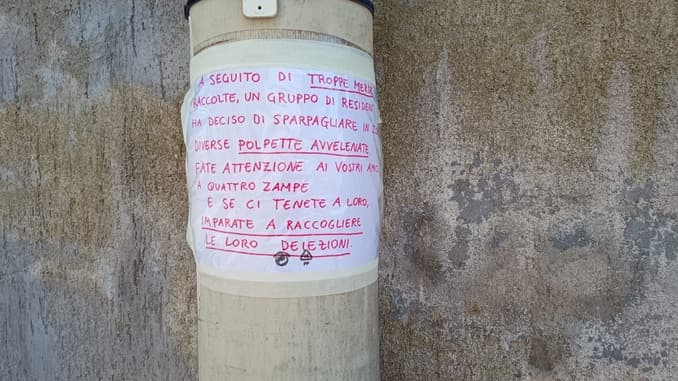 A SEGUITO DI TROPPE MERDE
RACCOLTE, UN GRUPPO DI RESIDENT
HA DECISO DI SPARPAGLIARE IN
DIVERSE POLPETTE AVVELENATE
FATE ATTENZIONE AI VOSTRI AMICI
A QUATTRO ZAMPE
E SE CI TENETE A LORO,
IMPARATE A RACCOGLIERE
LE LORO DEIEZIONI.
PP